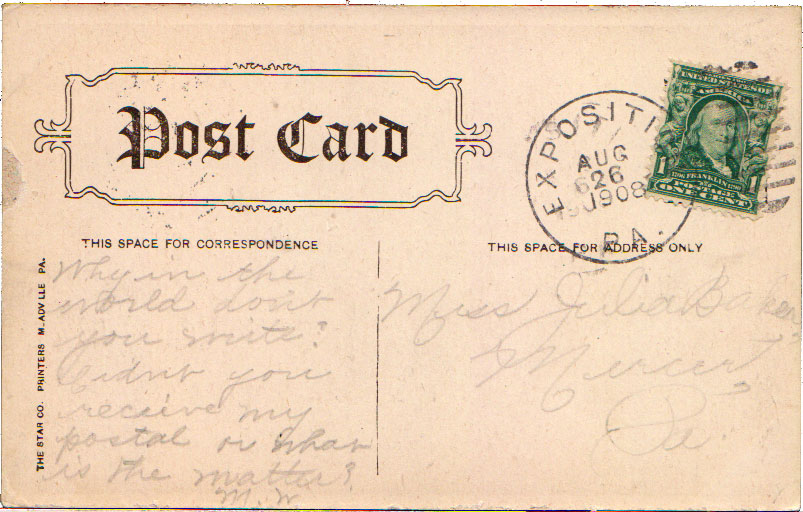 Post Card
EXPOSITI
AUG
26
1908
PA.
UNITED STATES OF
1 FRANKLIN 1
ONE CENT
THIS SPACE FOR CORRESPONDENCE
THIS SPACE FOR ADDRESS ONLY
THE STAR CO. PRINTERS M ADV LLE PA.
Why in the
world don't
you write?
Didnt you
recieve my
postal or what
is the matter?
M. W.
Miss Julia
Mercer,
Pa.